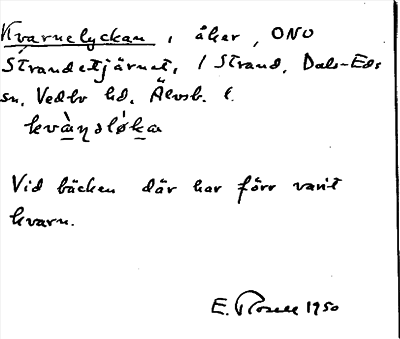 Kvarnelyckan, åker, ONO
Strandetjärnet, 1 Strand, Dals-Eds
sn, Vedbo hd, Älvsb. l.
kvàɳsløka
Vid bäcken där har förr varit
kvarn.
E. Rosell 1950